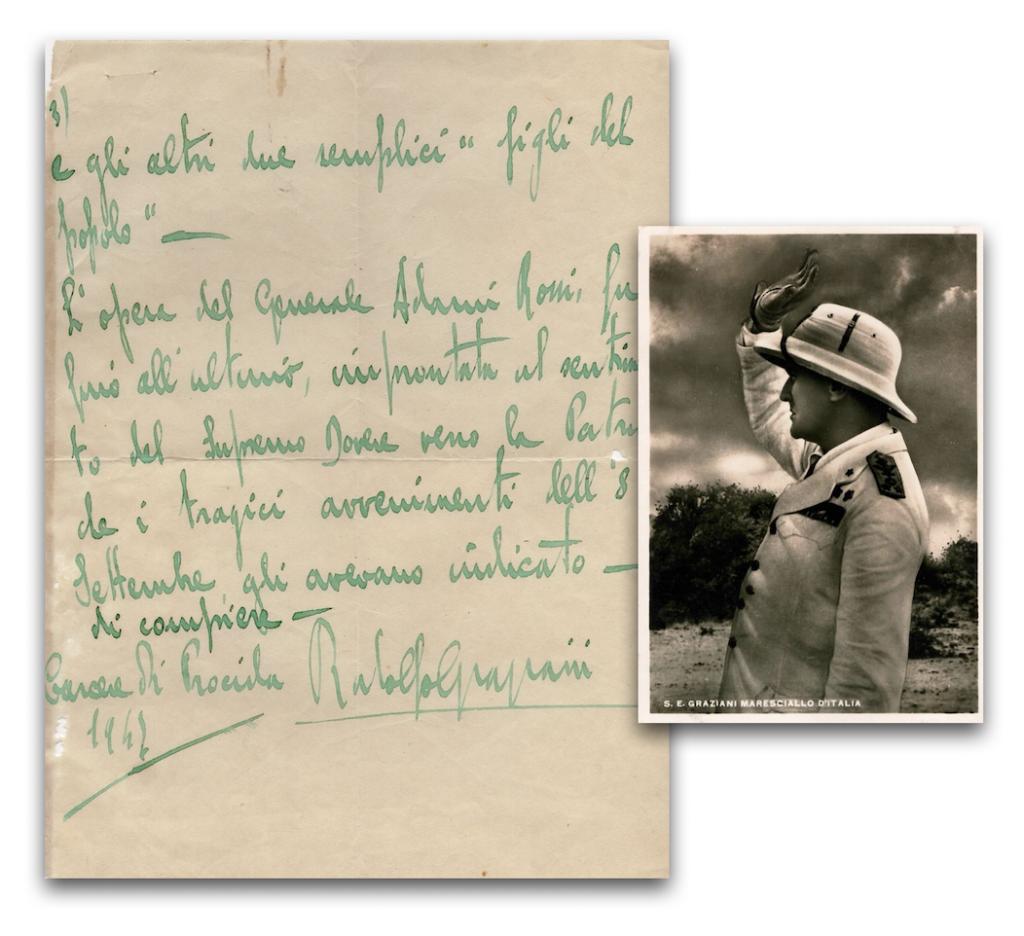 3)
e gli altri due semplici " figli del
popolo " —
L'opera del Generale Adami Rossi, fu
fino all'ultimo, improntata al sentim
to del Supremo Dovere verso la Patri
che i tragici avvenimenti dell' 8
Settembre gli avevano indicato —
di compiere —
Carcere di Procida Rodolfo Graziani
1947
S. E. GRAZIANI MARESCIALLO D'ITALIA